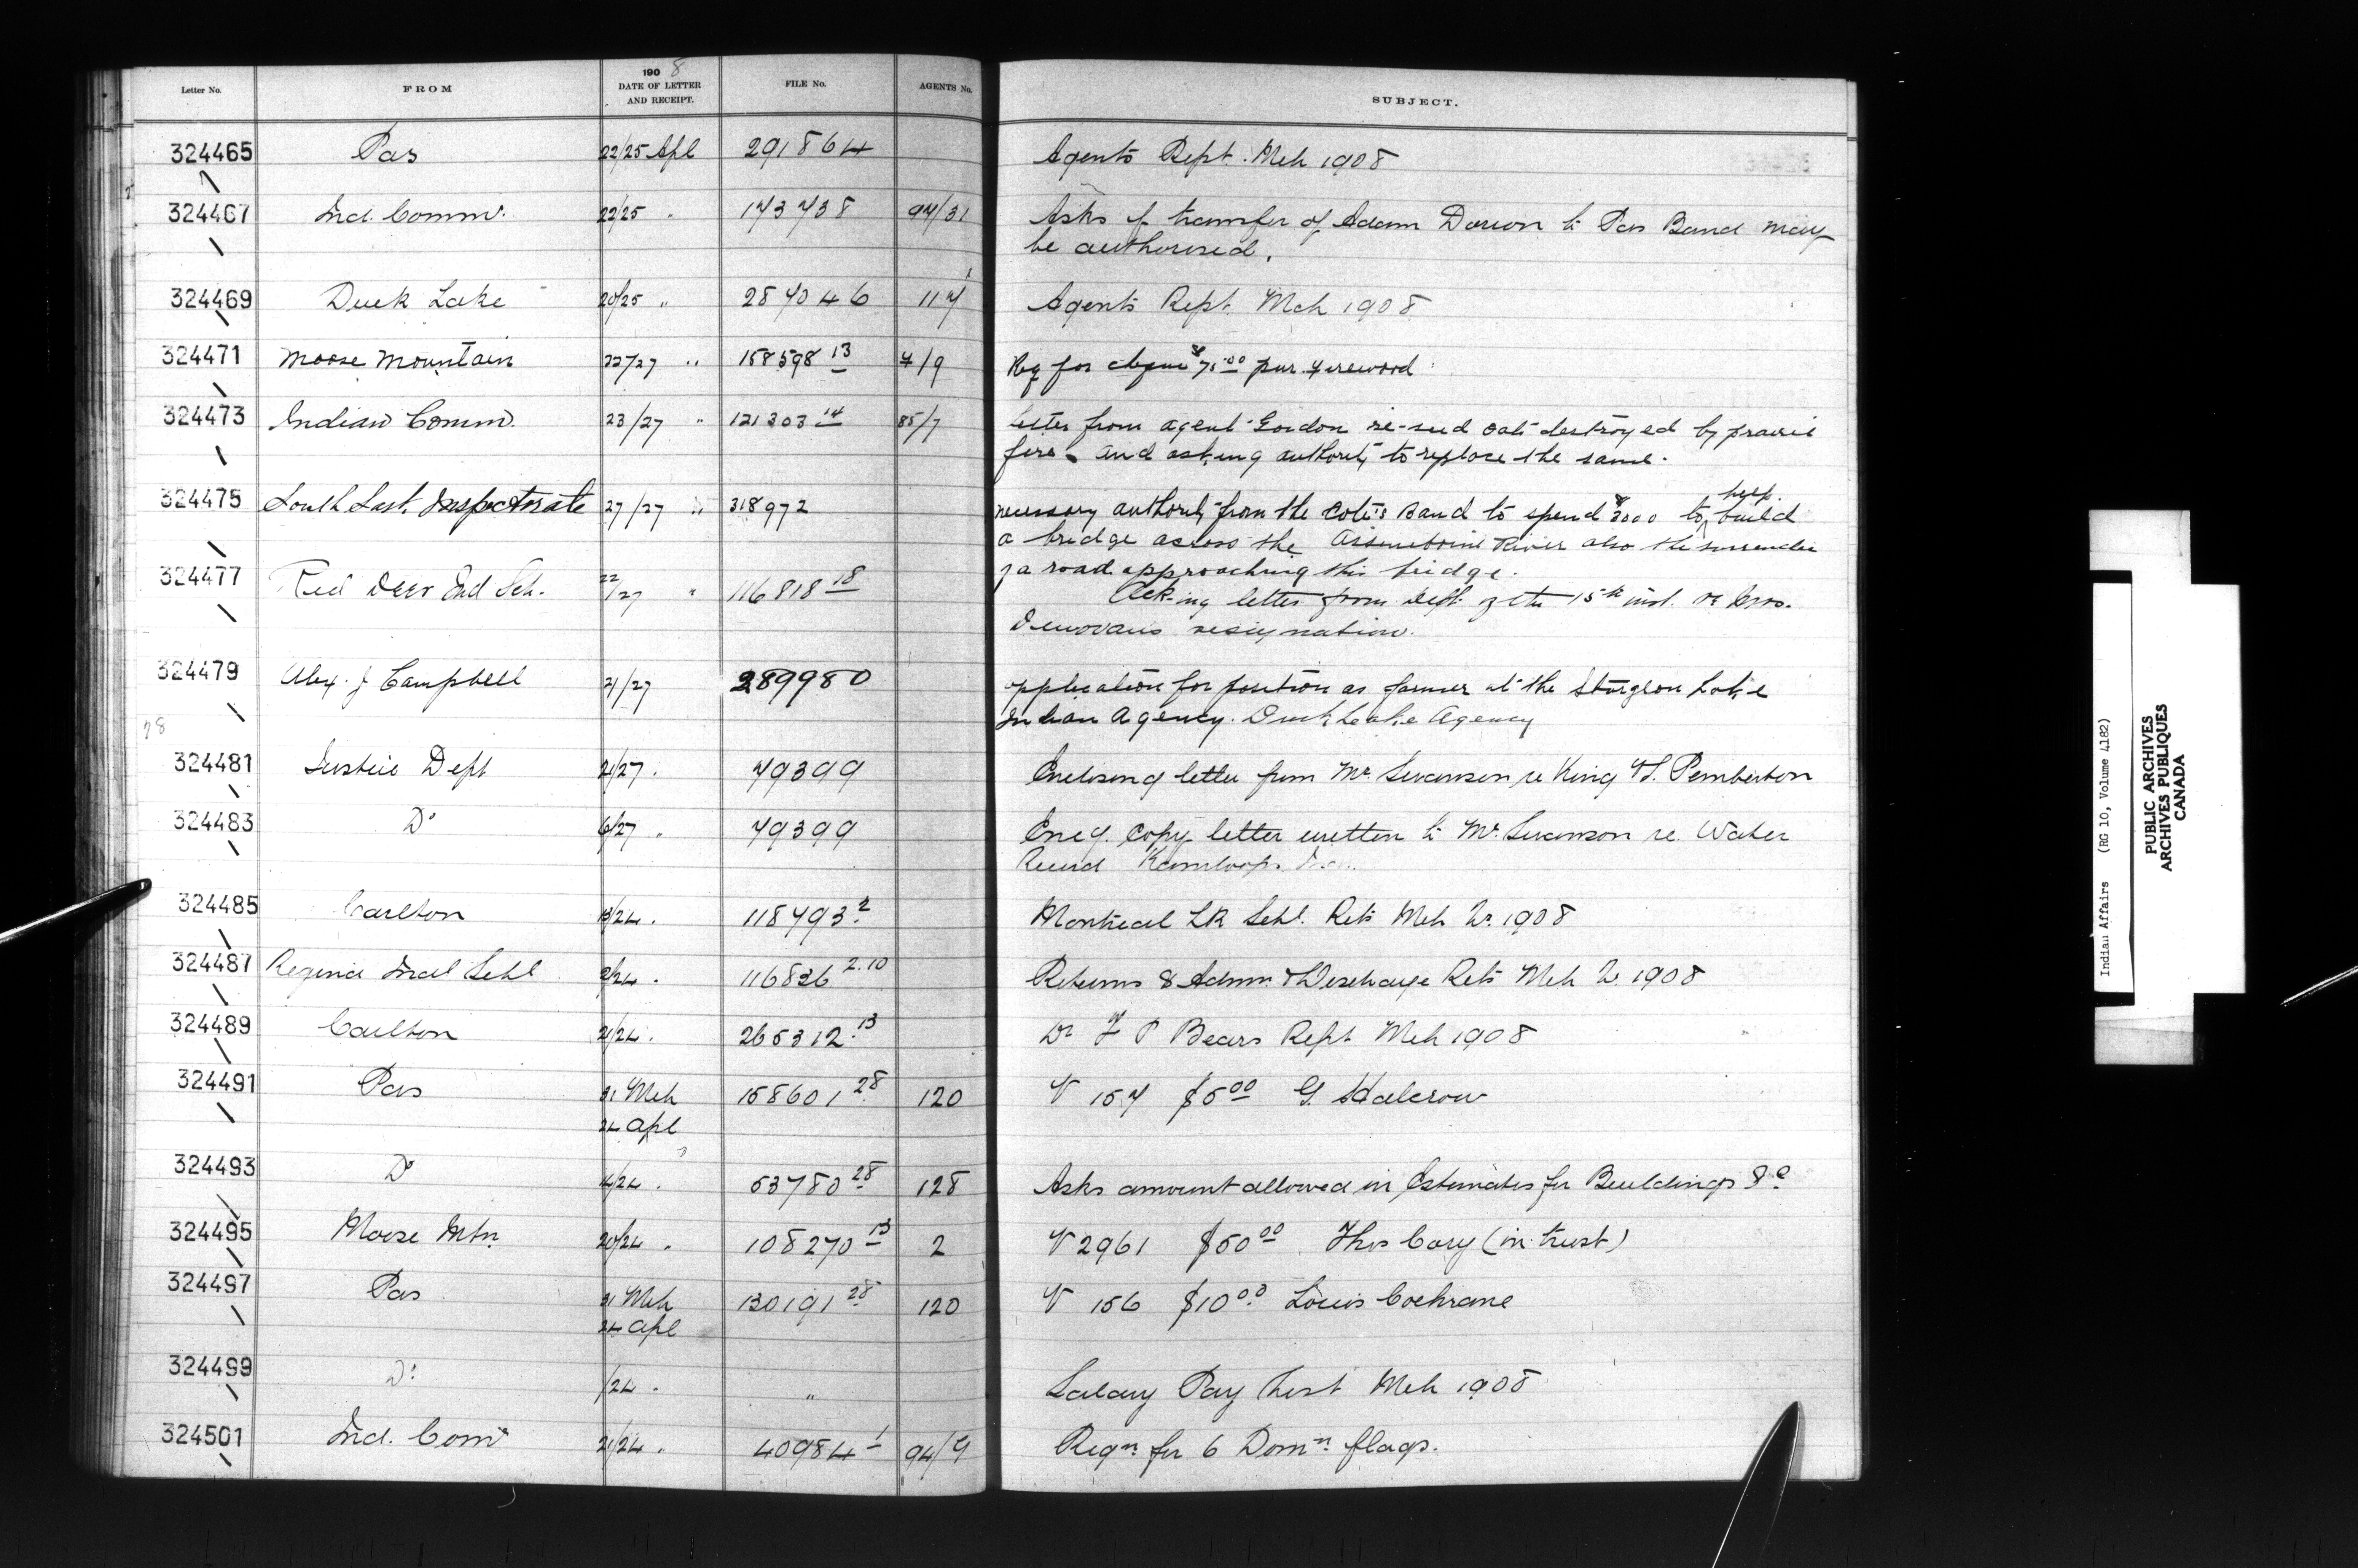 Letter No. FROM 1908 DATE OF LETTER AND RECEIPT. FILE No. AGENTS No. SUBJECT.
324465 Pas 22/25 Apl 291864 Agents Rept. Mch 1908
324467 Ind. Commr. 22/25 " 173738 94/31 Asks if transfer of Adam Dorion to Pas Band may
be authorised.
324469 Duck Lake 20/25 " 287046 117 Agents Rept. Mch 1908
324471 Moose Mountain 22/27 " 158598 13 7/9 Req for cheque $75.00 pur. firewood
324473 Indian Comm. 23/27 " 121303 14 85/7 letter from agent Gordon re-seed oats destroyed by prairie
fire and asking authority to replace the same.
324475 South Sask. Inspectorate 27/27 " 318972 necessary authority from the Cote's Band to spend $3000 to help build
a bridge across the Assineboine River also the surrender
of a road approaching this bridge.
324477 Red Deer Ind Sch. 22/27 " 116818 18 Ack-ing letter from Dept. of the 15th inst. re
resignation.
324479 Alex. J Campbell 21/27 289980 application for position as farmer at the Sturgeon Lake
Indian Agency. Duck Lake Agency
78
324481 Justice Dept 21/27 . 79399 Enclosing letter from Mr. Swanson re King vs. Pemberton
324483 Do 6/27 " 79399 Encg. Copy letter written to Mr. Swanson re. Water
Record Kamloops
324485 Carlton 13/24 . 118793 2 Montreal LK Schl. Rets Mch Qr. 1908
324487 Regina Indl Schl 2/24 . 116836 2.10 Returns & Admn. & Discharge Rets Mch Qr. 1908
324489 Carlton 21/24 . 265312 13 Dr F P Bears Rept Mch 1908
324491 Pas 31 Mch 158601 28 120 V 157 $5.00 G. Halcrow
24 Apl
324493 Do 4/24 . 53780 28 128 Asks amount allowed in Estimates for Buildings &c
324495 Moose Mtn. 20/24 " 108270 13 2 V 2961 $50.00 Thos Cory (in trust)
324497 Pas 31 Mch 130191 28 120 V 156 $10.00 Louis Cochrane
24 Apl
324499 Do /24 . " Salary Pay List Mch 1908
324501 Ind. Comr 21/24 . 40984 1 94/9 Reqn. for 6 Domn. flags.
Indian Affairs (RG 10, Volume 4182)
PUBLIC ARCHIVES
ARCHIVES PUBLIQUES
CANADA